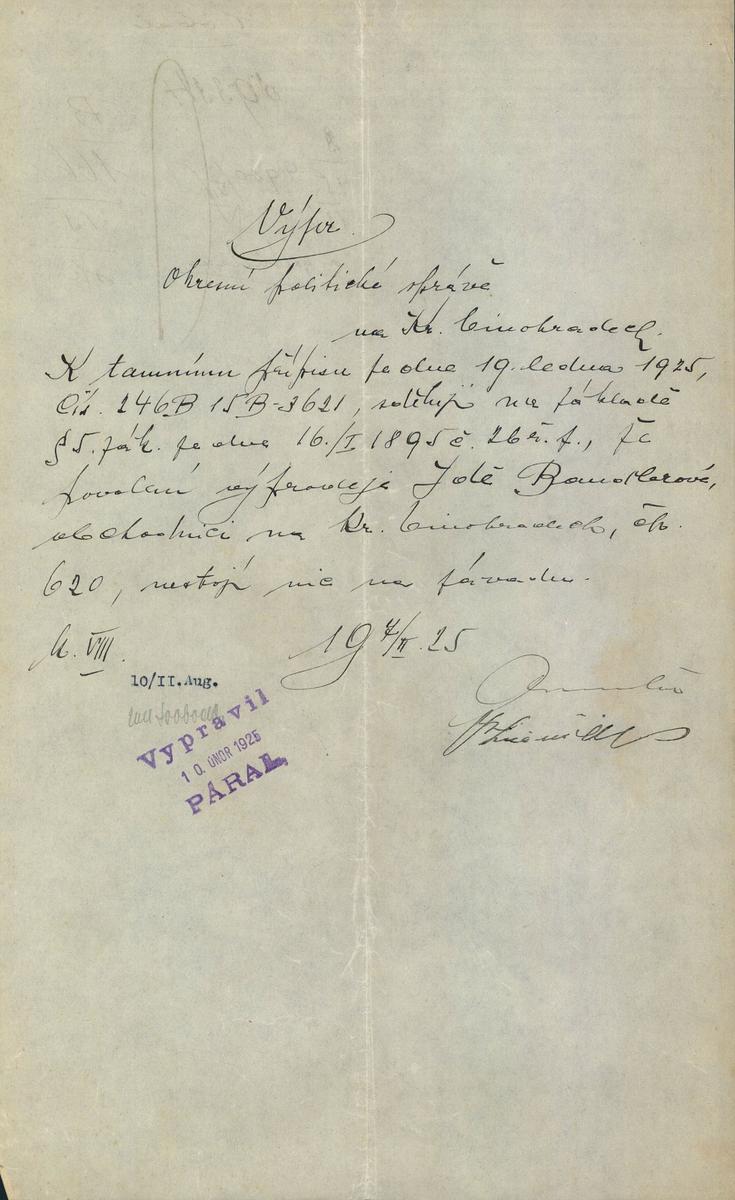 Výnos
Okresní politické správě
na Kr. Vinohradech.
K tamnímu přípisu ze dne 19. ledna 1925,
čís. 246B 15B-2621, sděluji na základě
§ 5. zák. ze dne 16./I 1895 č. 26 ř. z., že
povolení výprodeje Idě Bandlerové,
obchodnici na Kr. Vinohradech, čp.
620, nestojí nic na závadu.
M. VIII. 19 7/II. 25
10/II. Aug.
Vypravil
10. ÚNOR 1925
PÁRAL